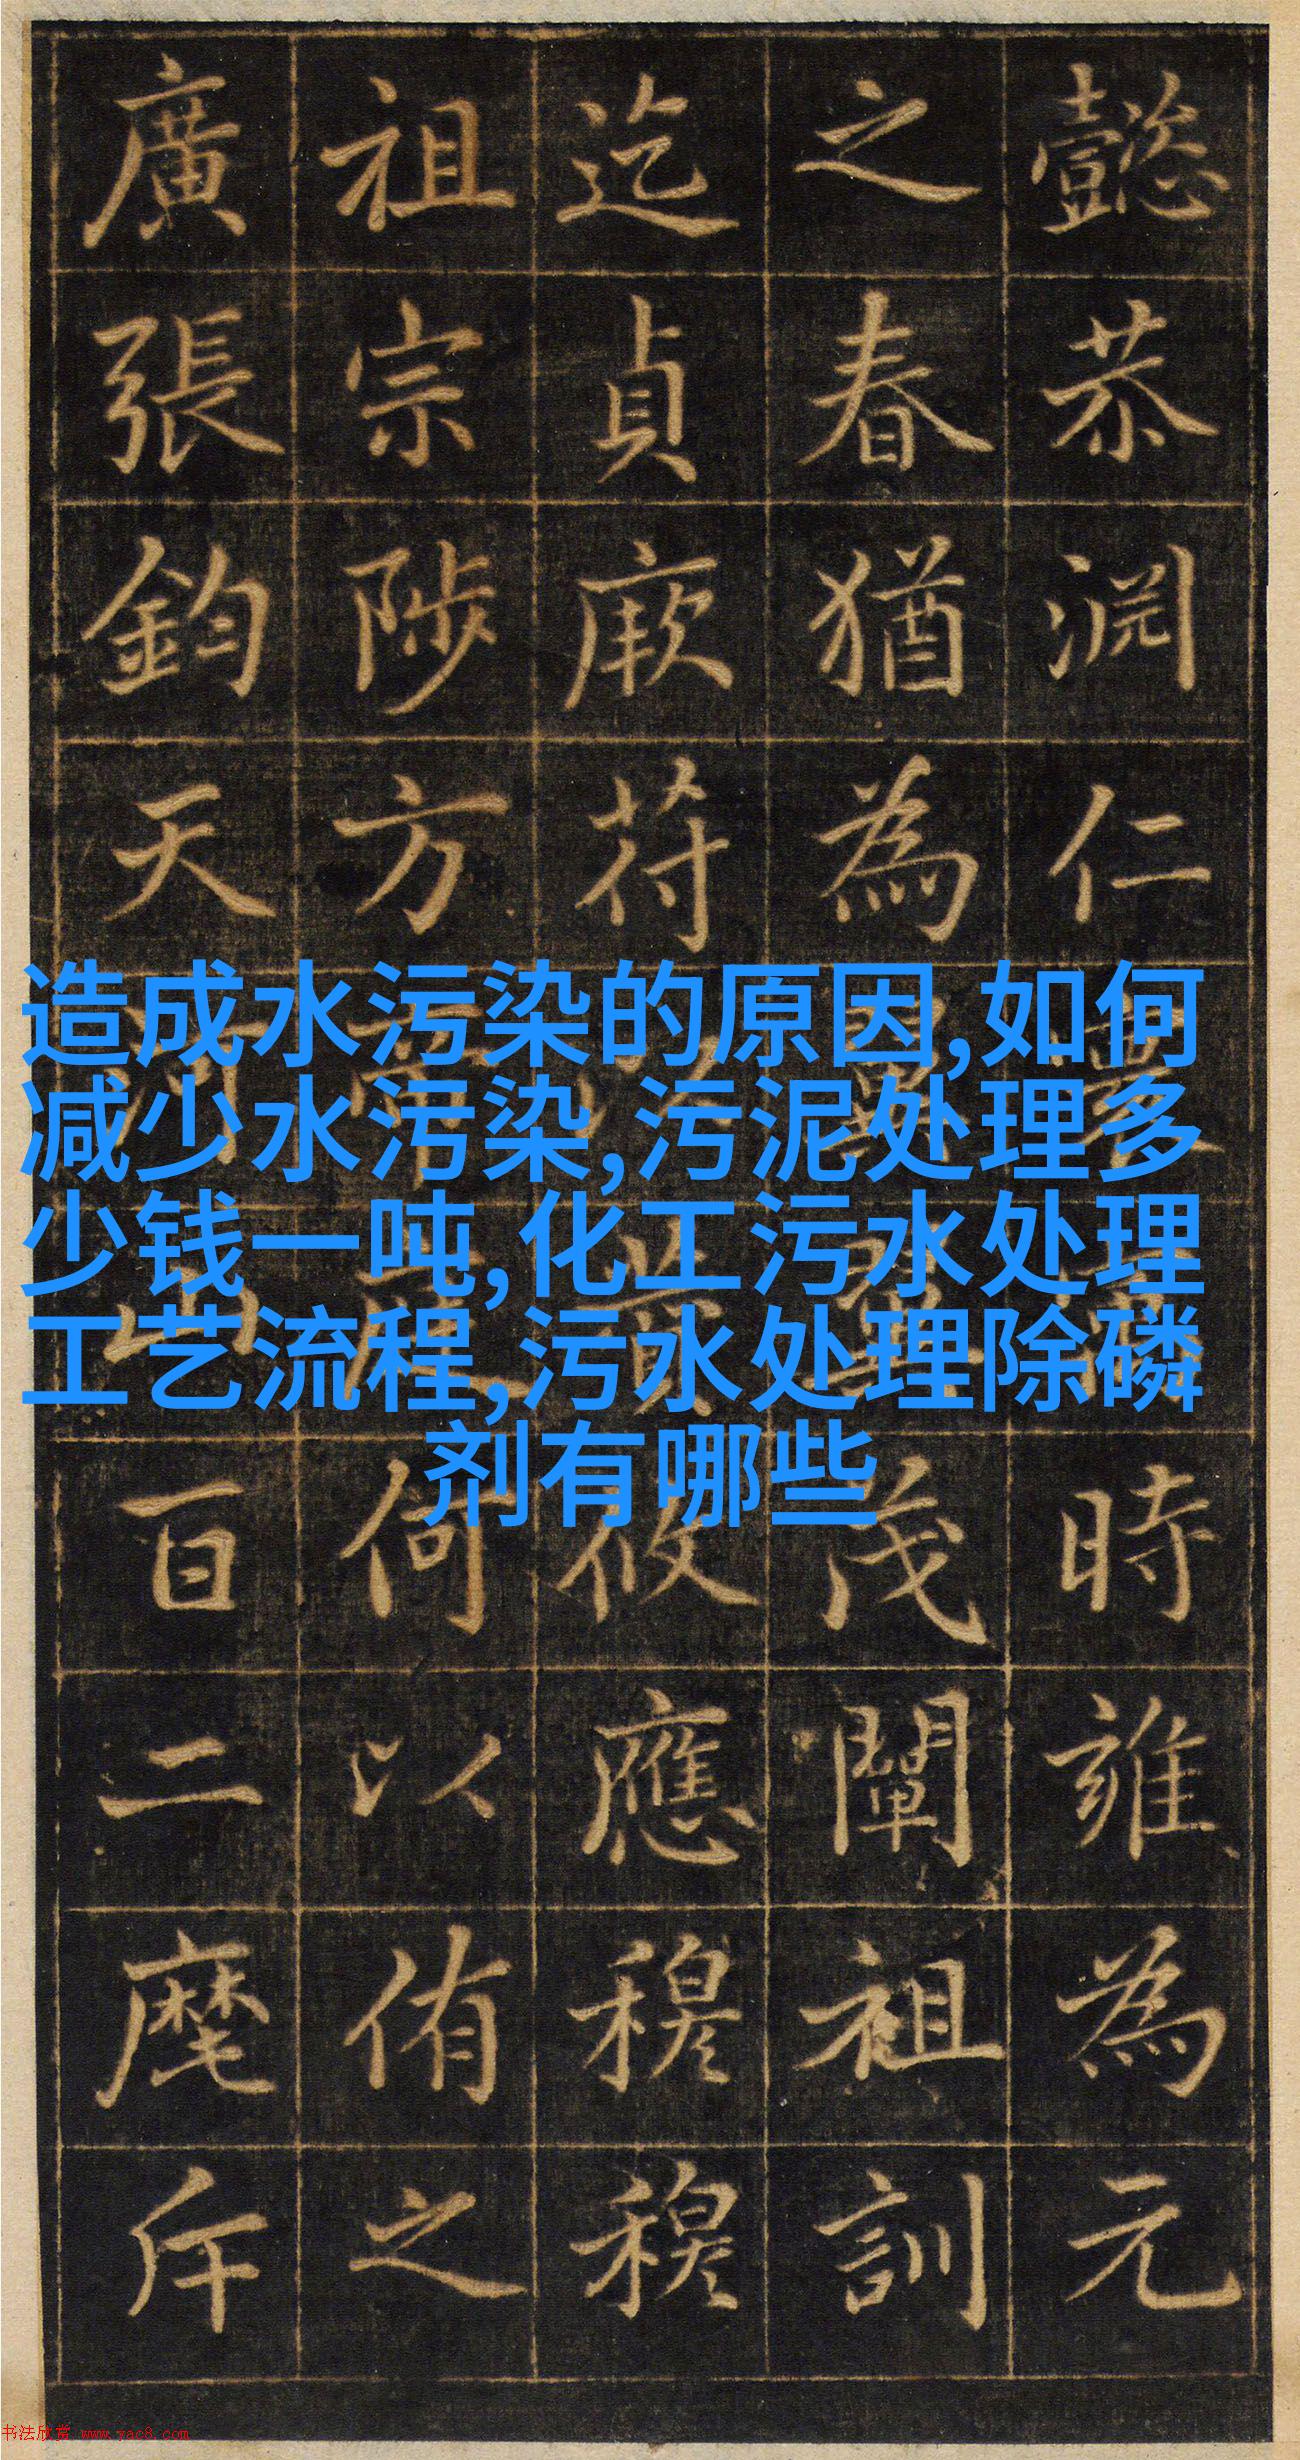 懿恭淵仁時雍為元
之春猶為茂闡祖訓
迄貞厥符攸應穆穆
祖宗陟方何以侑之
廣張鈞天河山百二麾斥
造成水污染的原因,如何
减少水污染,污泥处理多
少钱一吨,化工污水处理
工艺流程,污水处理除磷
剂有哪些
书法欣赏 www.yac8.com